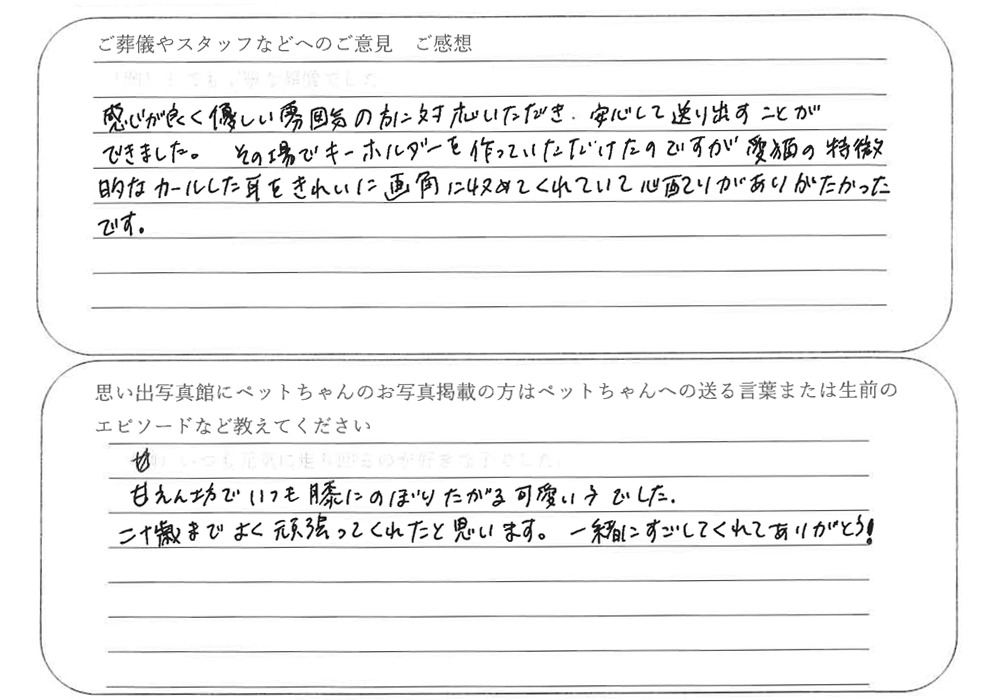 ご葬儀やスタッフなどへのご意見　ご感想
感じが良く優しい雰囲気の方に対応いただき、安心して送り出すことが
できました。 その場でキーホルダーを作っていただけたのですが愛猫の特徴
的なカールした耳をきれいに画角に収めてくれていて心配りがありがたかった
です。
思い出写真館にペットちゃんのお写真掲載の方はペットちゃんへの送る言葉または生前の
エピソードなど教えてください
いつも元気に走り回るのが好きな子でした。
甘えん坊でいつも膝にのぼりたがる可愛い子でした。
二十歳までよく頑張ってくれたと思います。 一緒にすごしてくれてありがとう!